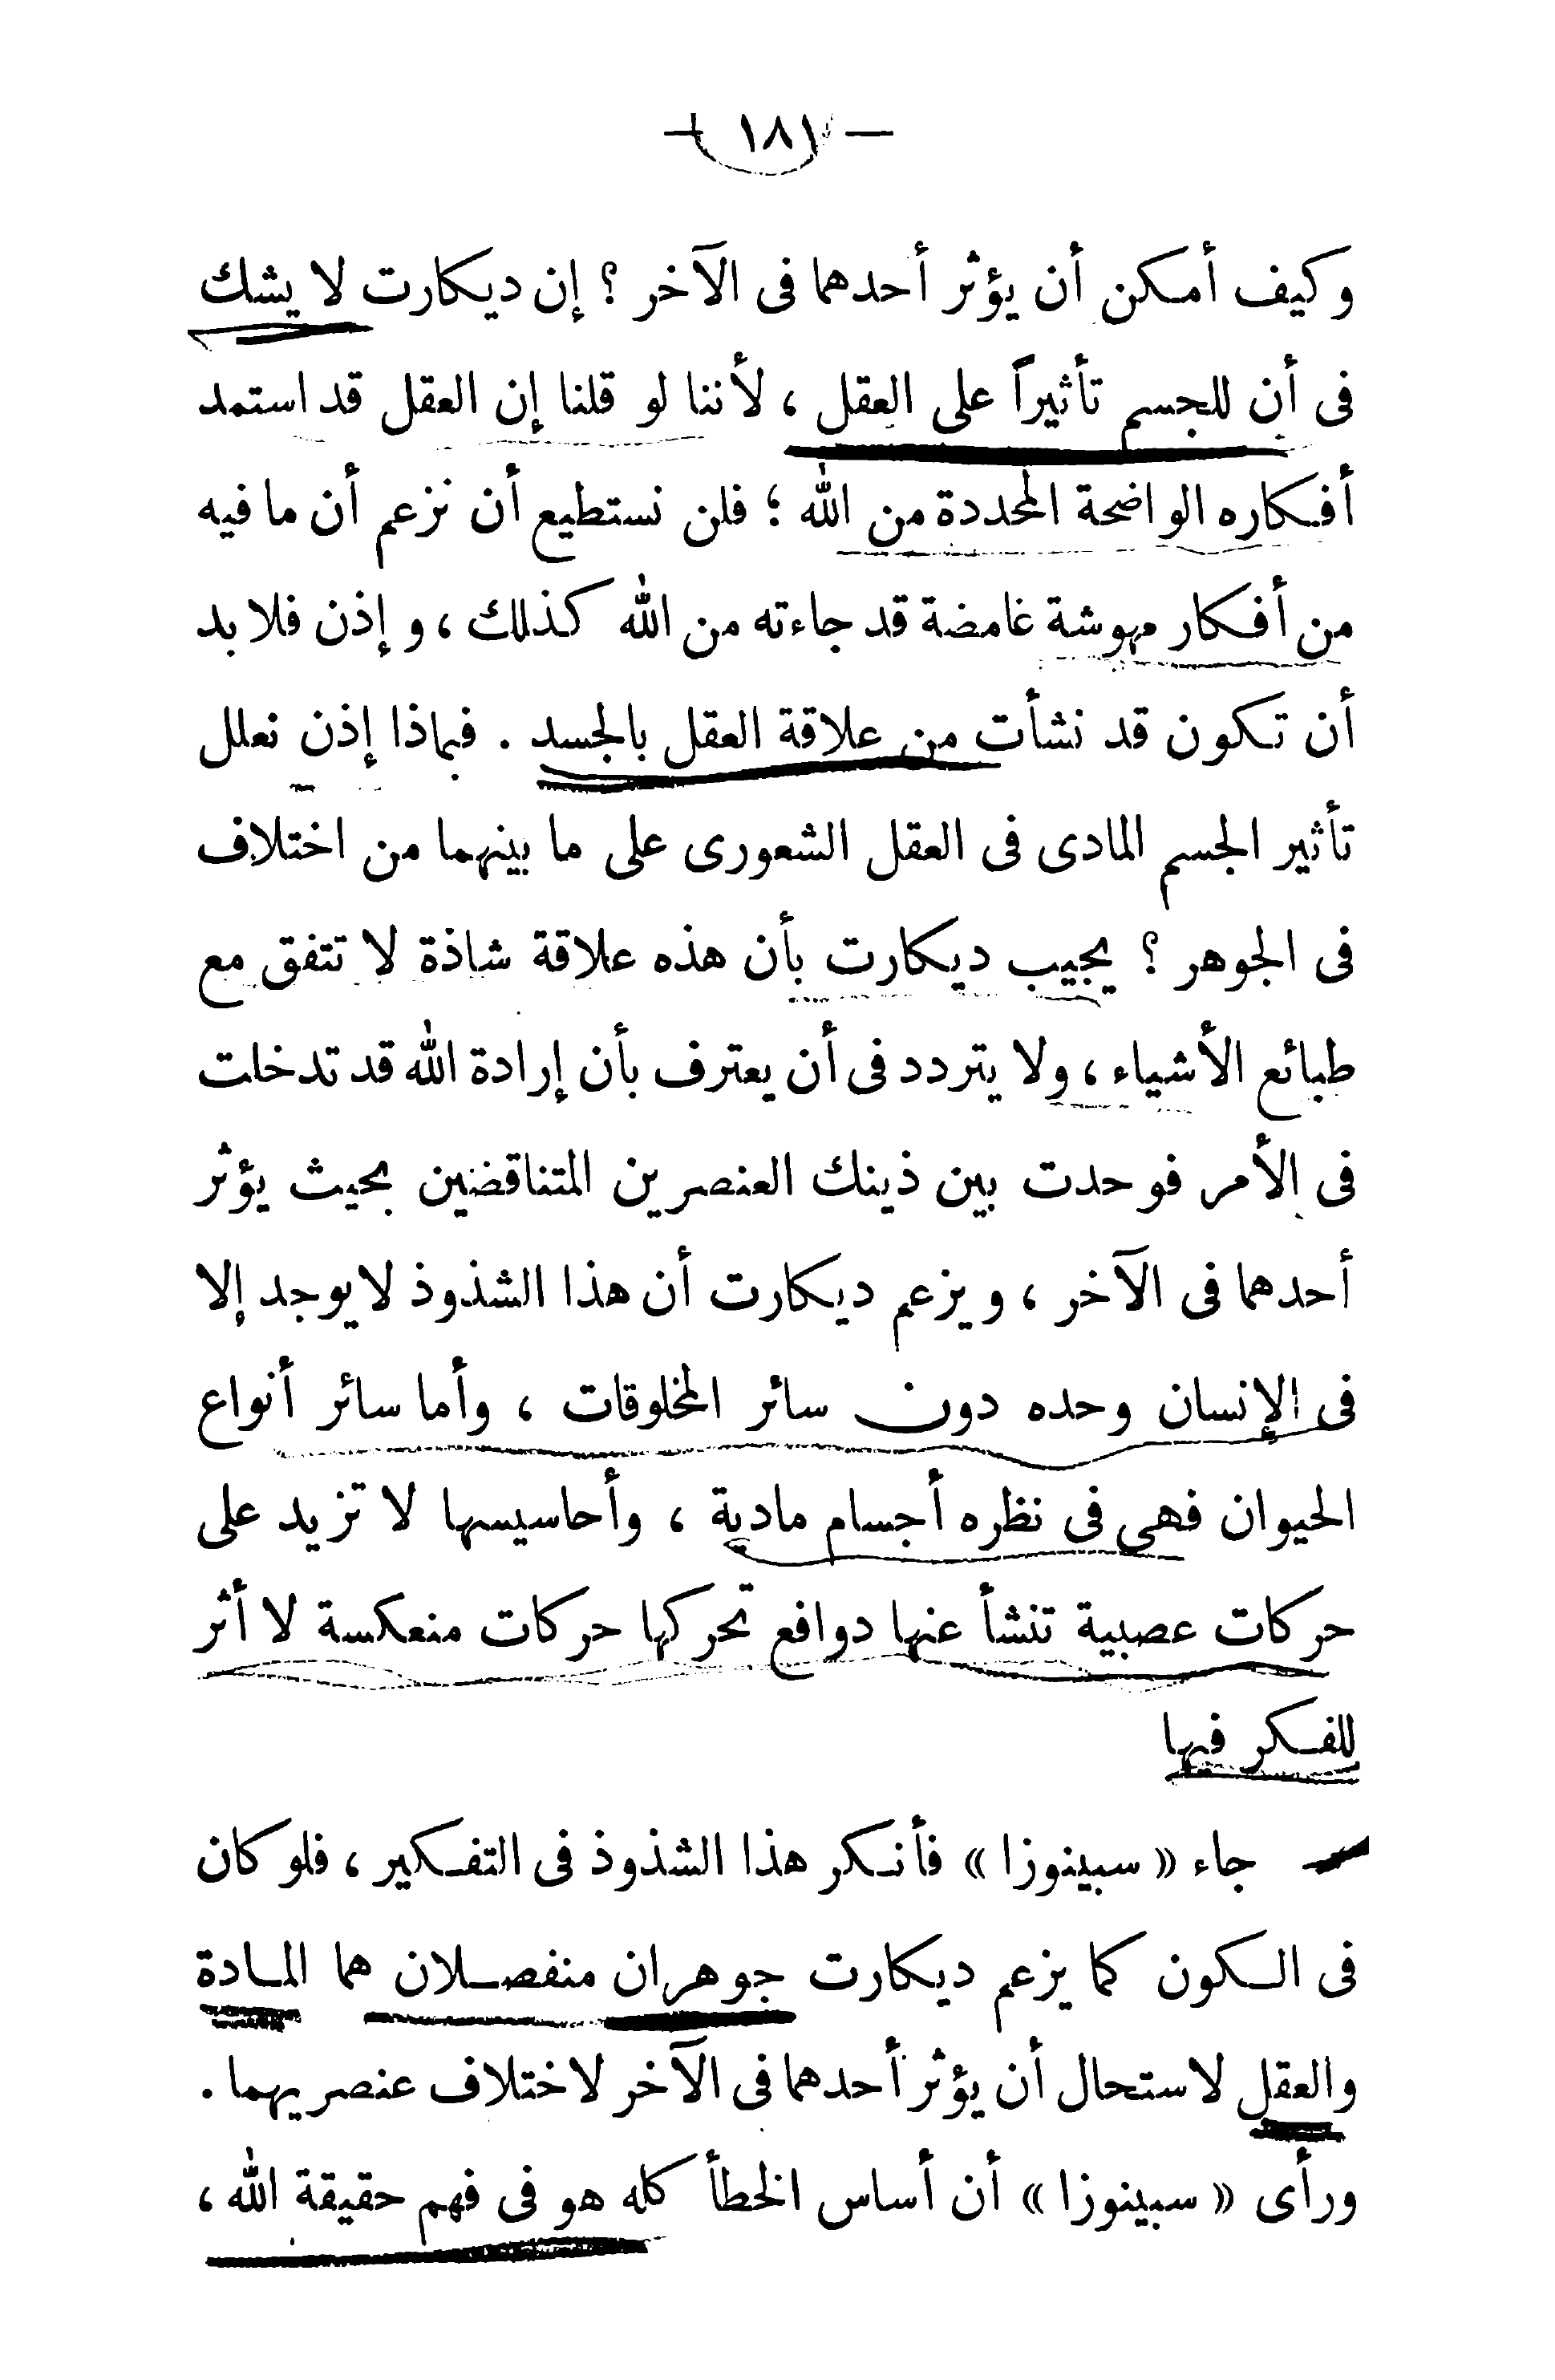 — ١٨١ —
وكيف أمكن أن يؤثر أحدهما فى الآخر ؟ إن ديكارت لا يشك
فى أن للجسم تأثيراً على العقل ، لأننا لو قلنا إن العقل قد استمد
أفكاره الواضحة المحددة من الله ؛ فلن نستطيع أن نزعم أن ما فيه
من أفكار مهوشة غامضة قد جاءته من الله كذلك ، وإذن فلا بد
أن تكون قد نشأت من علاقة العقل بالجسد . فبماذا إذن نعلل
تأثير الجسم المادى فى العقل الشعورى على ما بينهما من اختلاف
فى الجوهر ؟ يجيب ديكارت بأن هذه علاقة شاذة لا تتفق مع
طبائع الأشياء ، ولا يتردد فى أن يعترف بأن إرادة الله قد تدخلت
فى الأمر فوحدت بين ذينك العنصرين المتناقضين بحيث يؤثر
أحدهما فى الآخر ، ويزعم ديكارت أن هذا الشذوذ لا يوجد إلا
فى الإنسان وحده دون سائر المخلوقات ، وأما سائر أنواع
الحيوان فهى فى نظره أجسام مادية ، وأحاسيسها لا تزيد على
حركات عصبية تنشأ عنها دوافع تحركها حركات منعكسة لا أثر
للفكر فيها
جاء « سبينوزا » فأنكر هذا الشذوذ فى التفكير ، فلو كان
فى الكون كما يزعم ديكارت جوهران منفصلان هما المادة
والعقل لاستحال أن يؤثر أحدهما فى الآخر لاختلاف عنصريهما .
ورأى « سبينوزا » أن أساس الخطأ كله هو فى فهم حقيقة الله ،